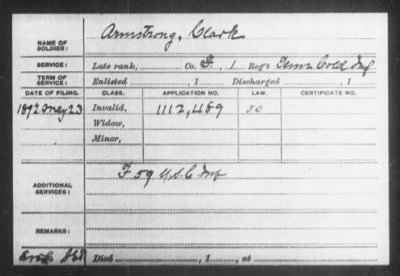 NAME OF SOLDIER: Armstrong, Clark
SERVICE: Late rank, Co. F, 1 Reg't Tenn Cold Inf
TERM OF SERVICE: Enlisted , 1 Discharged , 1
DATE OF FILING. CLASS. APPLICATION NO. LAW. CERTIFICATE NO.
1892 May 23 Invalid, 1112,489
Widow,
Minor,
ADDITIONAL SERVICES: F 59 U.S.C Inf
REMARKS:
Died , 1 , at